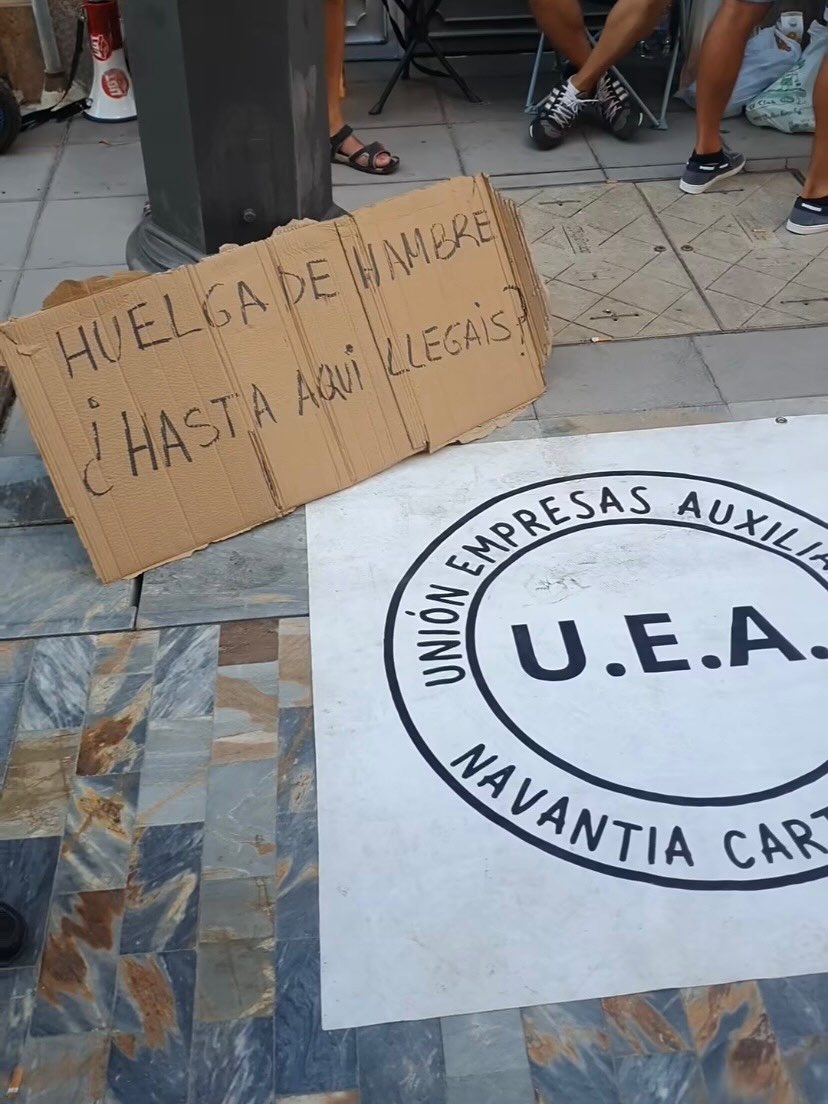 HUELGA DE HAMBRE
¿HASTA AQUI LLEGAIS?
UNIÓN EMPRESAS AUXILIA
U.E.A.
NAVANTIA CART